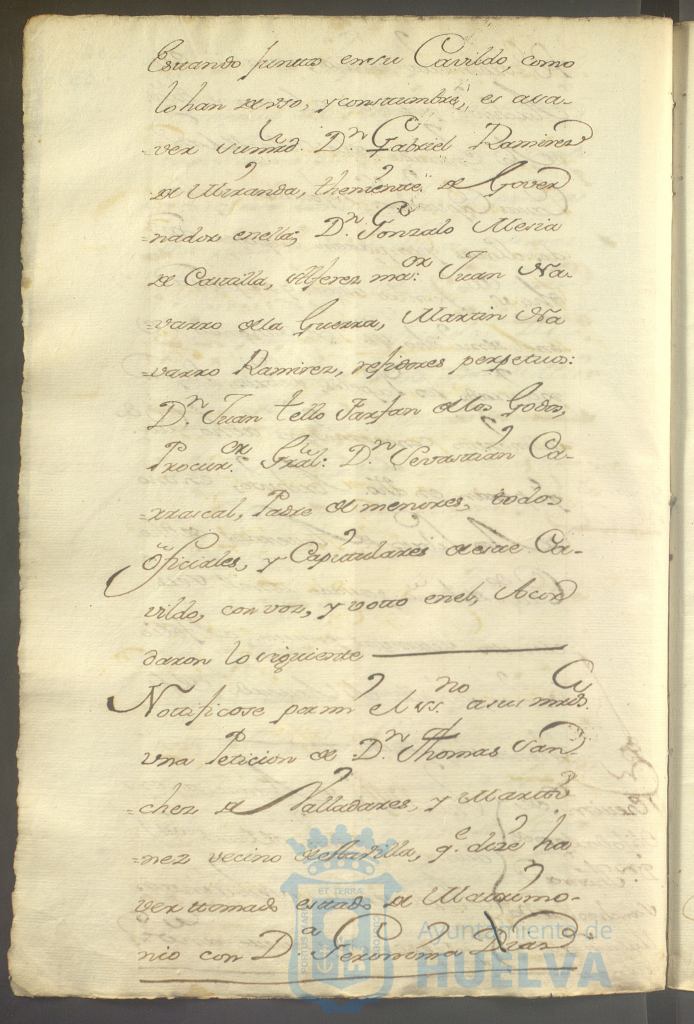 Estando juntto en su Cavildo, como
lo han de uso, y constumbre, es a sa-
-ver su mrd. Dn. Gabriel Ramirez
de Miranda, theniente de Gover
-nador en ella; Dn. Gonzalo Mesia
de Castilla, Alferez maor. Juan Na-
-varro de la Guerra, Martin Na
-varro Ramirez, rejidores perpetuos:
Dn. Juan tello Farfan de los Godos,
Procuror. Gral: Dn. Sevastian Ca-
-rrascal, Padre de menores, todos
oficiales, y Capitulares de este Ca-
vildo, con voz, y voto en el, Acor
daron lo siguiente
Nottificose por mi el ssno. a sus mrds.
una Peticion de Dn. Thomas San
chez de Valladares, y Martin
nez vecino de la villa, qe. dize ha
ver tomado estado de Matrimo-
nio con Da. Geronima
ET TERRÆ
PORTUS MARIS
CUSTODIA
Ayuntamiento de
HUELVA